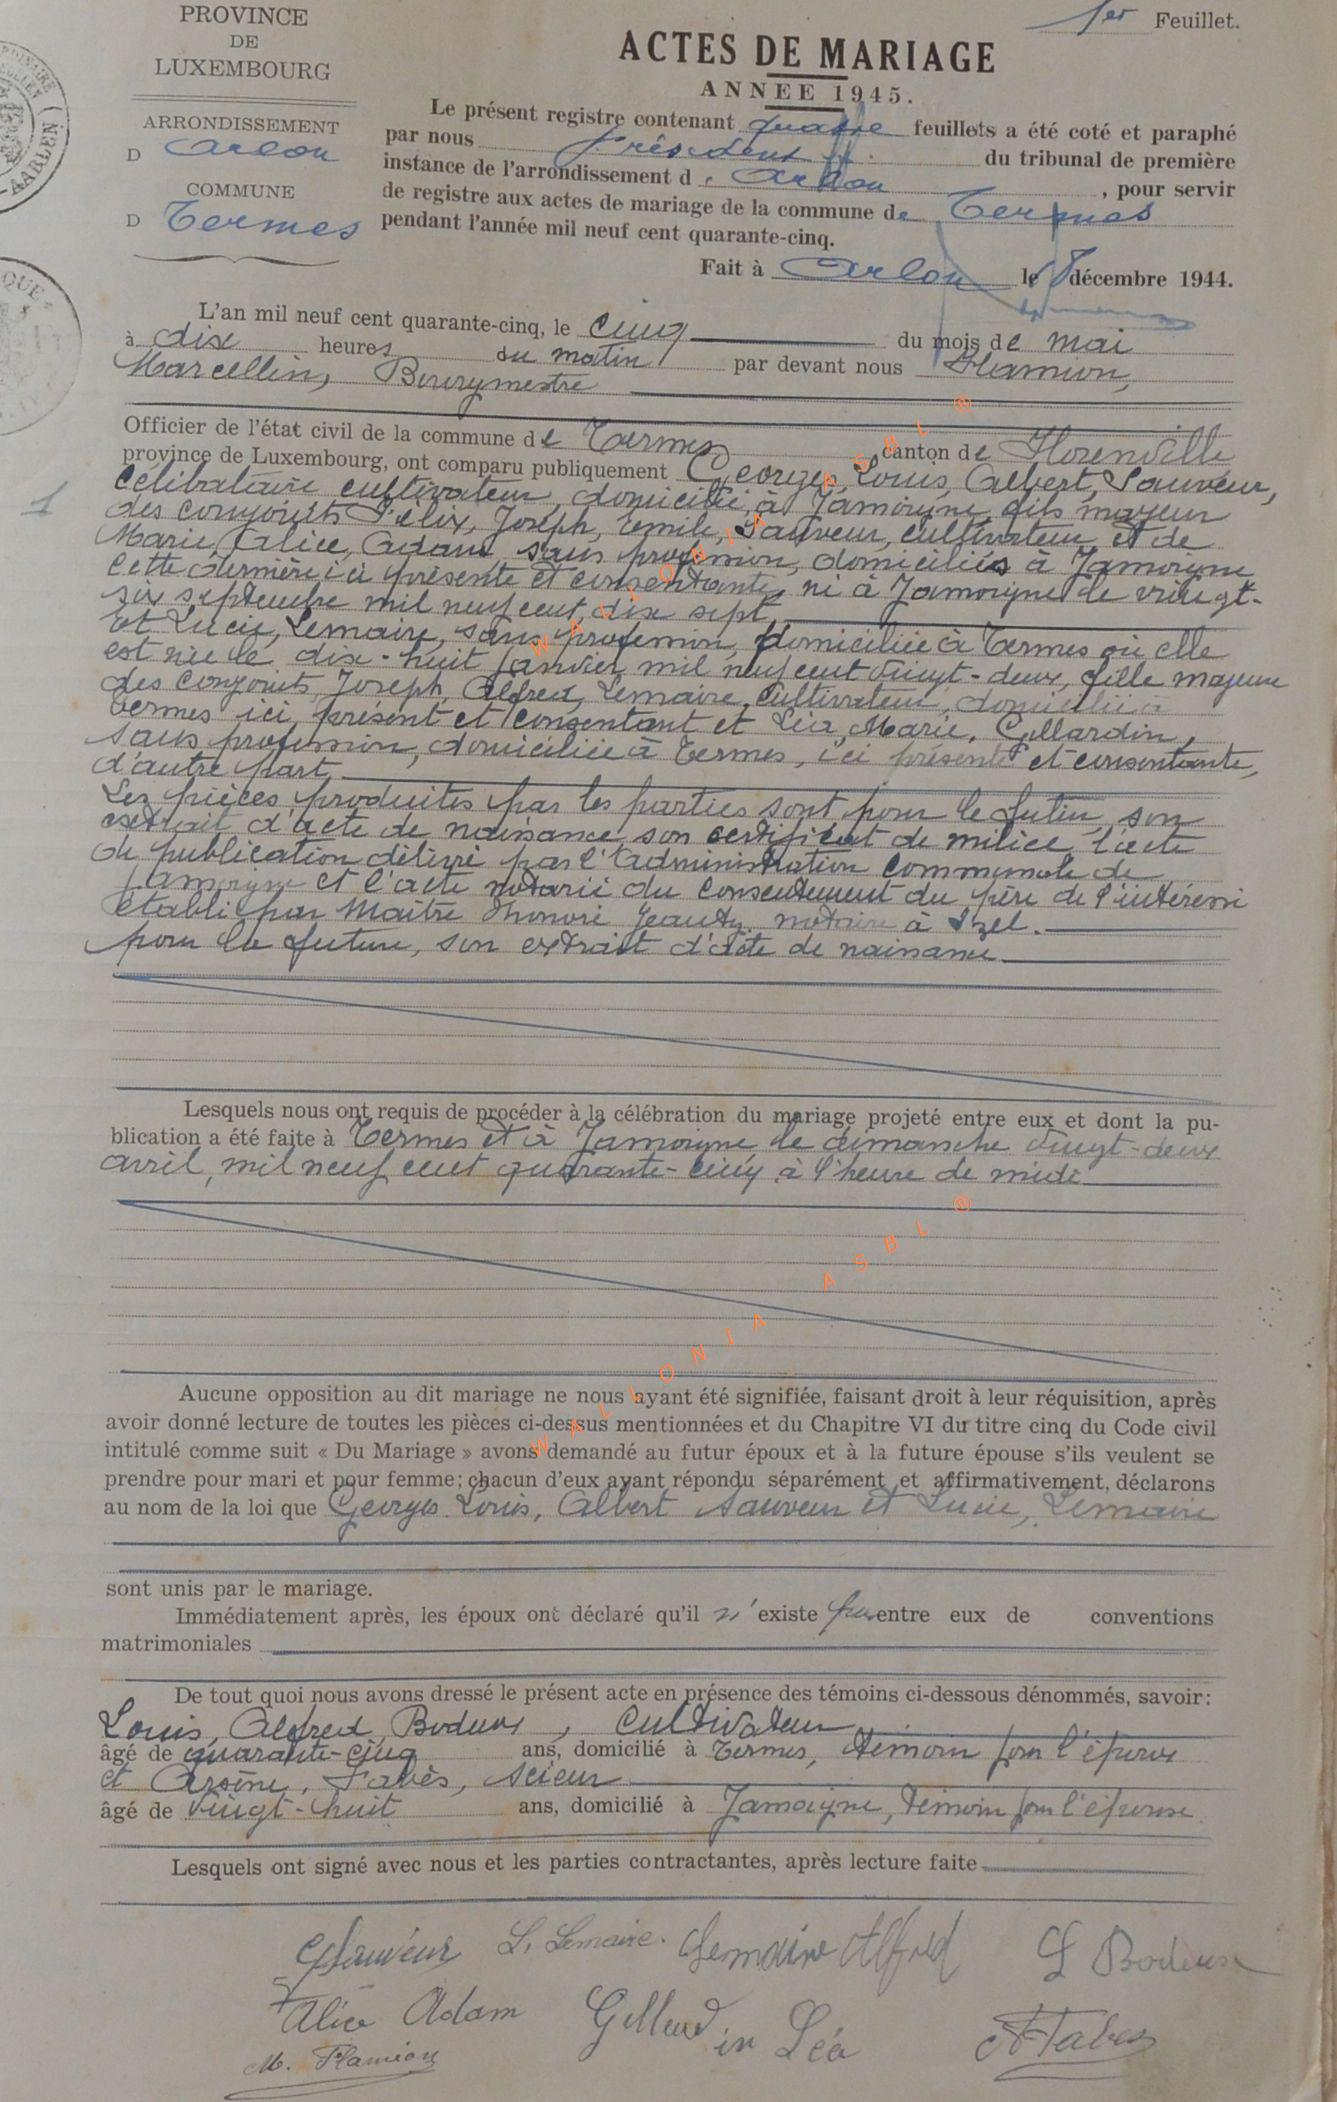 PROVINCE
DE
LUXEMBOURG
ARRONDISSEMENT
D Arlon
COMMUNE
D Termes
1er Feuillet.
ACTES DE MARIAGE
ANNEE 1945.
Le présent registre contenant quatre feuillets a été coté et paraphé
par nous Président du tribunal de première
instance de l'arrondissement d Arlon, pour servir
de registre aux actes de mariage de la commune de Termes
pendant l'année mil neuf cent quarante-cinq.
Fait à Arlon le 8 décembre 1944.
L'an mil neuf cent quarante-cinq, le cinq du mois de mai
à dix heures du matin par devant nous Flamion,
Marcellin, Bourgmestre
Officier de l'état civil de la commune de Termes canton de Florenville
province de Luxembourg, ont comparu publiquement Georges, Louis, Albert, Sauveur,
1
célibataire cultivateur, domicilié à Jamoigne, fils majeur
des conjoints Félix, Joseph, Emile, Sauveur, cultivateur et de
Marie, Alice, Adam, sans profession, domiciliés à Jamoigne
cette dernière ici présente et consentante, né à Jamoigne le vingt-
six septembre mil neuf cent dix sept
et Lucie, Lemaire, sans profession, domiciliée à Termes où elle
est née le dix-huit janvier mil neuf cent vingt-deux, fille majeure
des conjoints Joseph, Alfred, Lemaire, cultivateur, domicilié à
Termes ici présent et consentant et Léa, Marie, Gillardin,
sans profession, domiciliée à Termes, ici présente et consentante,
d'autre part
Les pièces produites par les parties sont pour le futur, son
extrait d'acte de naissance, son certificat de milice, l'acte
de publication délivré par l'Administration communale de
Jamoigne et l'acte notarié du consentement du père de l'intéressé
établi par Maître Honoré Jeanty notaire à Izel.
pour la future, son extrait d'acte de naissance
Lesquels nous ont requis de procéder à la célébration du mariage projeté entre eux et dont la pu-
blication a été faite à Termes et à Jamoigne le dimanche vingt-deux
avril, mil neuf cent quarante-cinq à l'heure de midi
Aucune opposition au dit mariage ne nous ayant été signifiée, faisant droit à leur réquisition, après
avoir donné lecture de toutes les pièces ci-dessus mentionnées et du Chapitre VI du titre cinq du Code civil
intitulé comme suit « Du Mariage » avons demandé au futur époux et à la future épouse s'ils veulent se
prendre pour mari et pour femme; chacun d'eux ayant répondu séparément et affirmativement, déclarons
au nom de la loi que Georges Louis, Albert Sauveur et Lucie, Lemaire
sont unis par le mariage.
Immédiatement après, les époux ont déclaré qu'il n'existe pas entre eux de conventions
matrimoniales
De tout quoi nous avons dressé le présent acte en présence des témoins ci-dessous dénommés, savoir:
Louis, Alfred, Bodeux, cultivateur
âgé de quarante-cinq ans, domicilié à Termes, témoin pour l'époux
et Arsène, Fabès, scieur
âgé de vingt-huit ans, domicilié à Jamoigne, témoin pour l'épouse
Lesquels ont signé avec nous et les parties contractantes, après lecture faite
G Sauveur L. Lemaire. Lemaire Alfred L Bodeux
Alice Adam Gillardin Léa A Fabes
M. Flamion
WALLONIA ASBL ®
WALLONIA ASBL ®